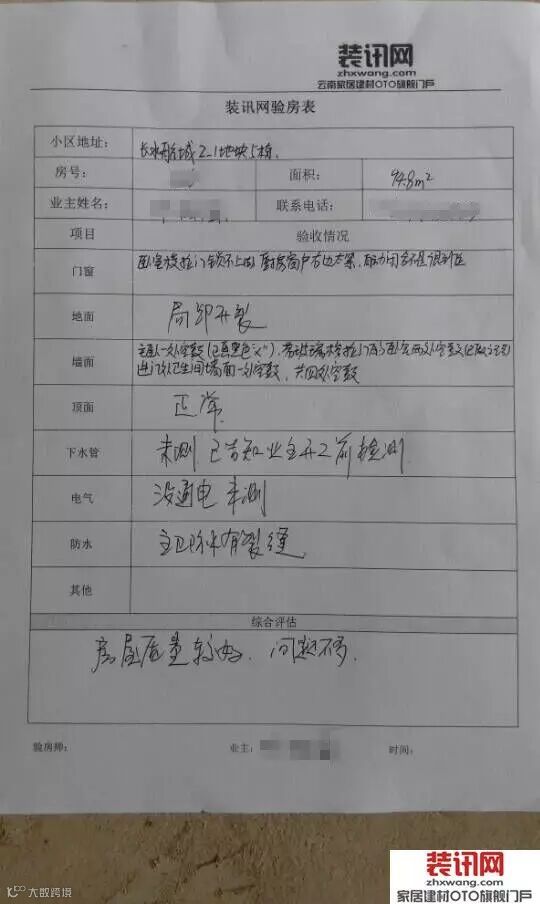 装讯网
zhxwang.com
云南家居建材OTO旗舰门户
装讯网验房表
小区地址： 长水航城2-1地块5栋.
房号： 面积： 94.8m²
业主姓名： 联系电话：
项目 验收情况
门窗 卧室楼拉门锁不上的 厨房窗户右边
地面 局部开裂
墙面 主卧一处空鼓(已画黑色"×").
进门处卫生间墙面一处空鼓, 共四处空鼓
顶面 正常.
下水管 未测 已告知业主开工前检测.
电气 没通电 未测
防水 主卫防水有裂缝
其他
综合评估
房屋质量较好、问题不多.
验房师： 业主： 时间：
大数跨境
装讯网
zhxwang.com
家居建材OTO旗舰门户